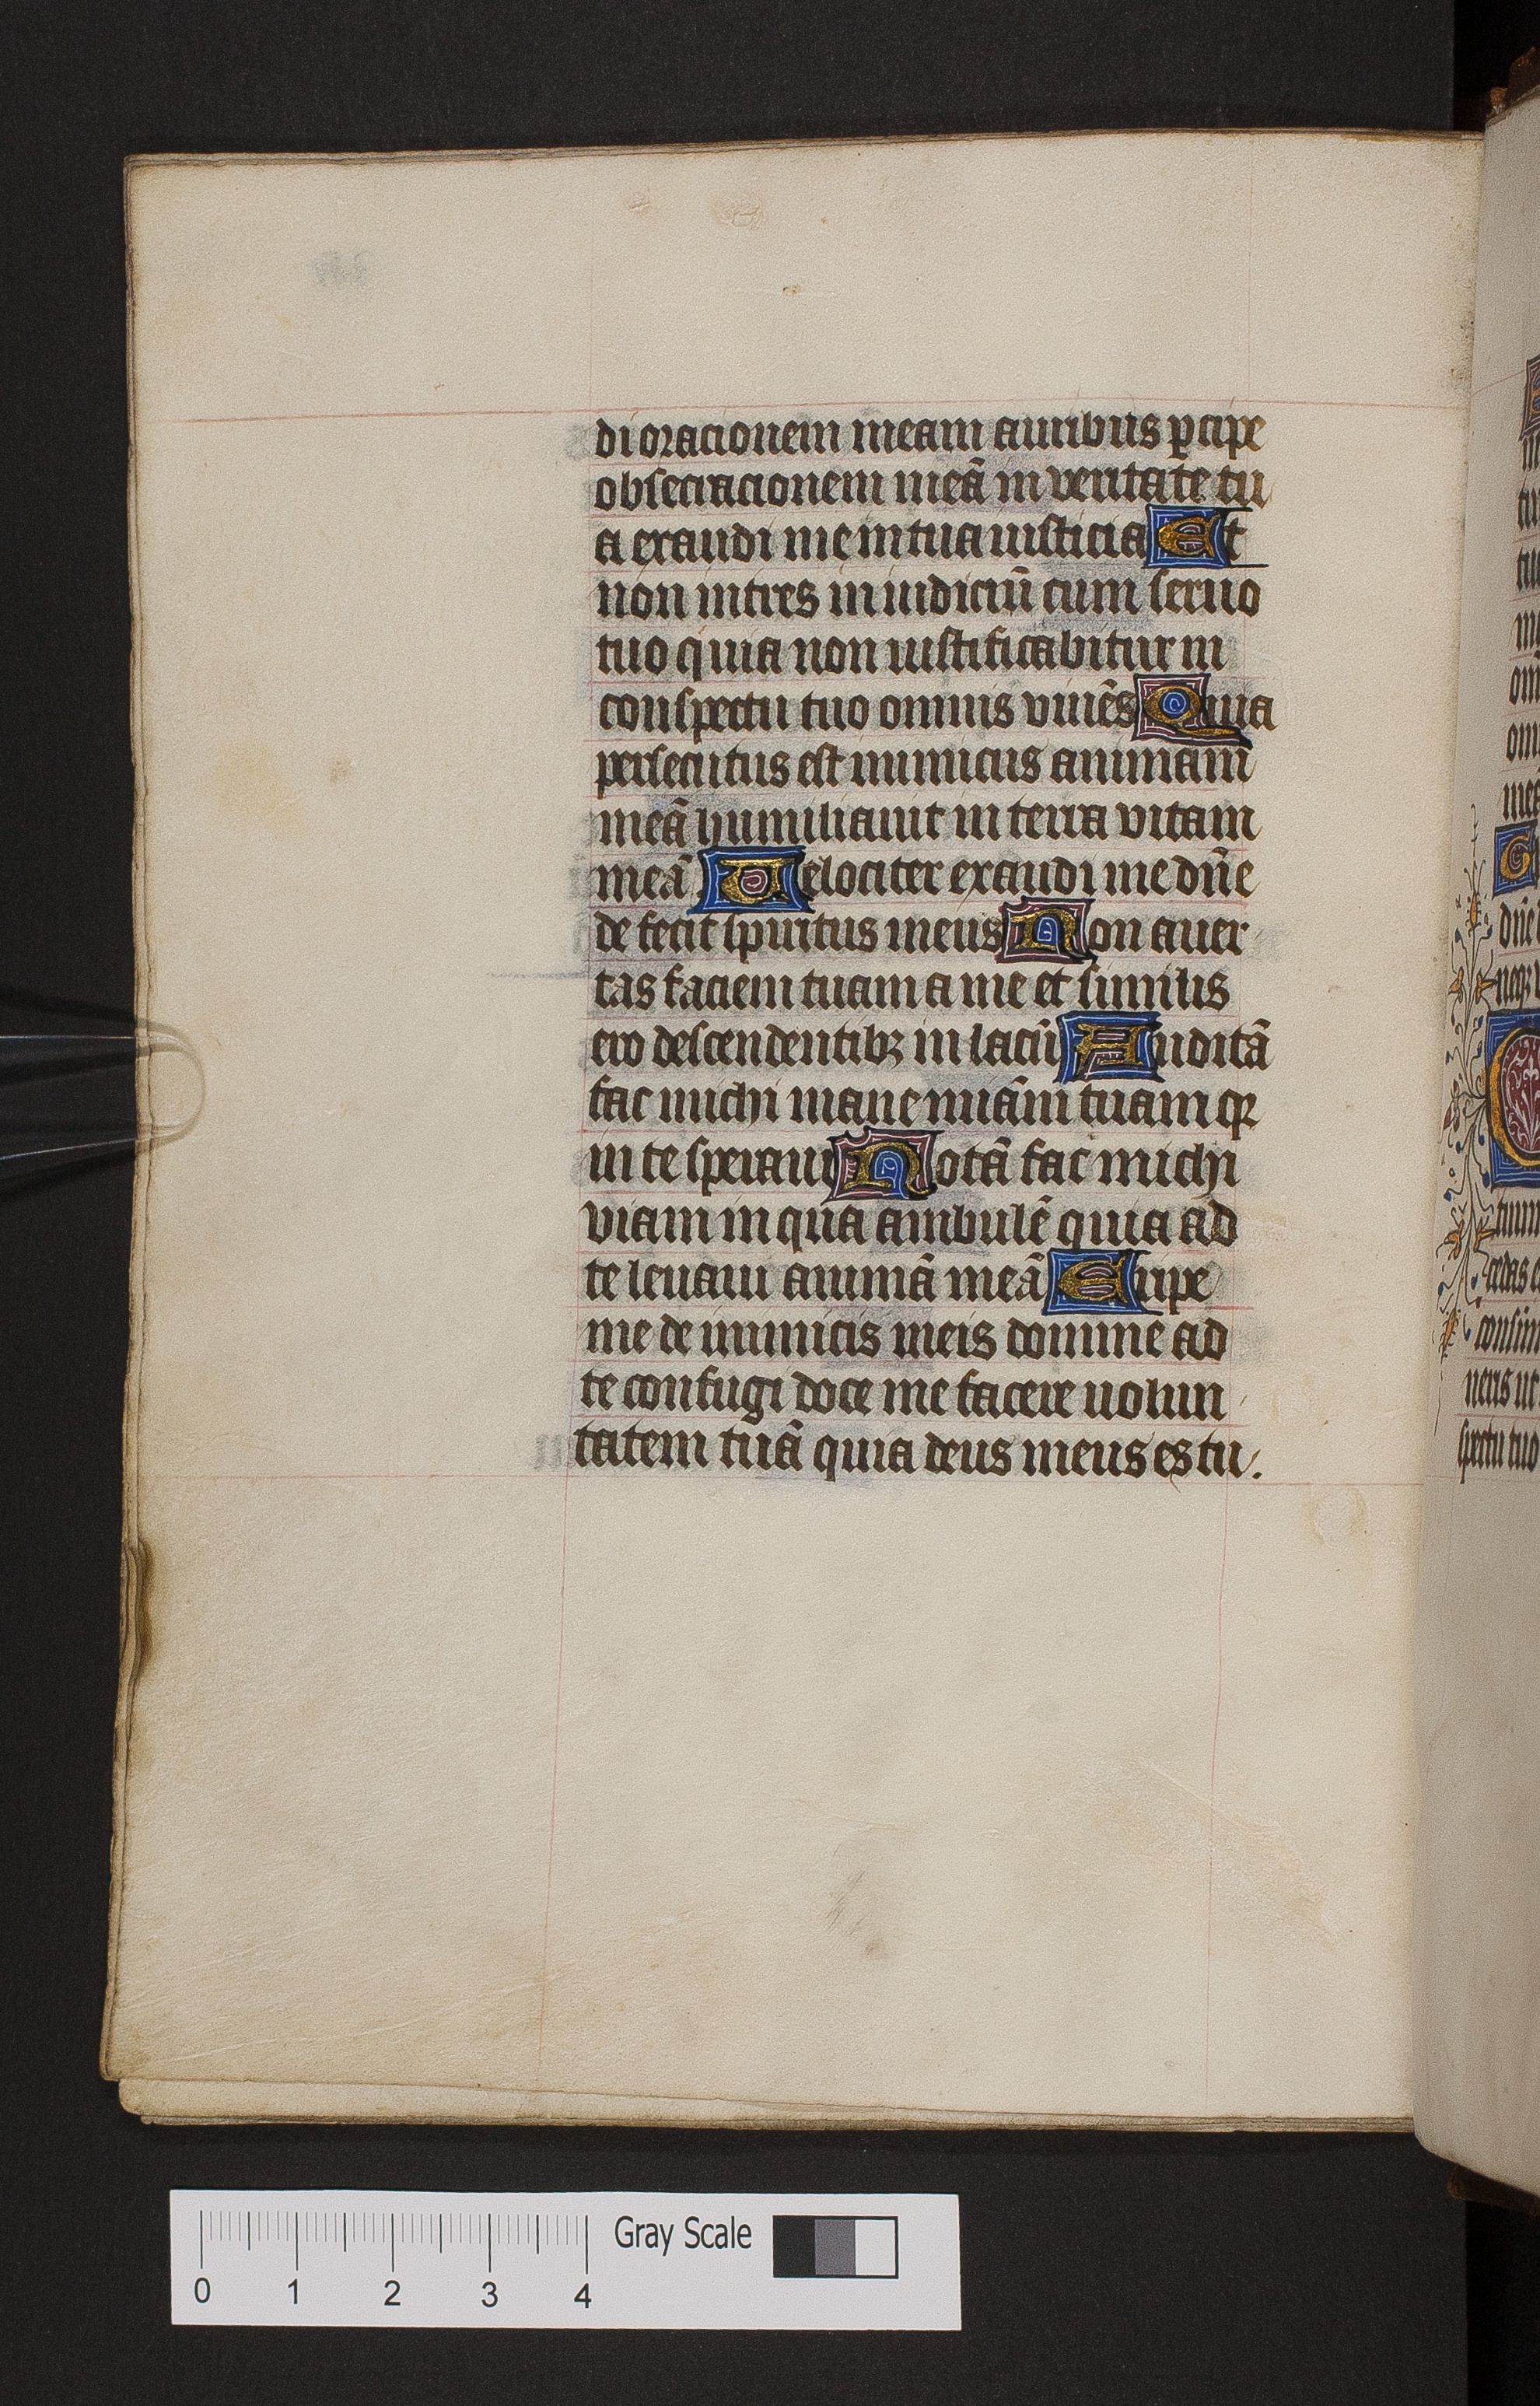 di oracionem meam auribus ꝑcipe
obsecracionem meã in veritate tu
a exaudi me in tua iusticia Et
non intres in iudiciũ cum seruo
tuo quia non iustificabitur in
conspectu tuo omnis viuẽs Quia
persecutus est inimicus animam
meã humiliauit in terra vitam
meã Uelociter exaudi me dñe
de fecit spiritus meus Non auer
tas faciem tuam a me et similis
ero descendentibꝫ in lacũ Auditã
fac michi mane miãm tuam qꝛ
in te speraui Notã fac michi
viam in qua ambulẽ quia ad
te leuaui animã meã Eripe
me de inimicis meis domine ad
te confugi doce me facere uolun
tatem tuã quia deus meus es tu.
Gray Scale
0 1 2 3 4